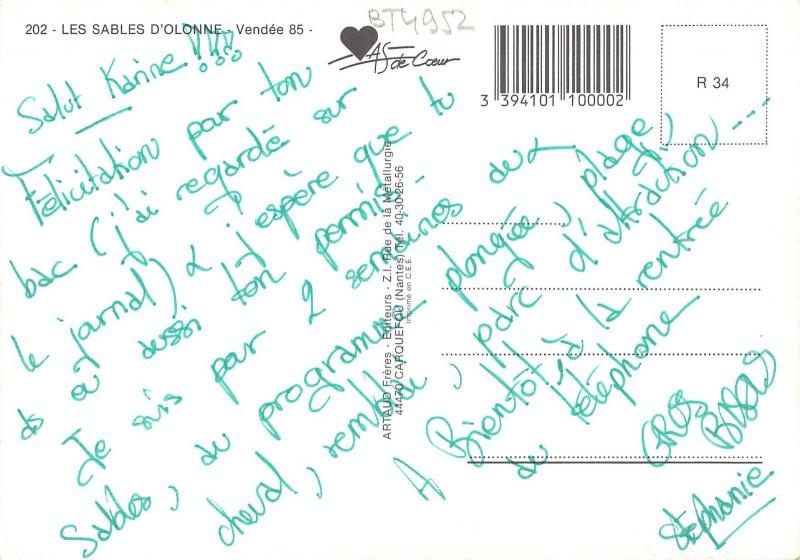 202 - LES SABLES D'OLONNE - Vendée 85 -
BT4952
AS de Cœur
3 394101 100002
R 34
ARTAUD Frères - Editeurs - Z.I. Rue de la Métallurgie
44470 CARQUEFOU (Nantes) Tél. 40-30-26-56
Imprimé en C.E.E.
Salut Karine !!!!
Félicitation par ton
bac (j'ai regardé sur
le jornal) & j'espère que tu
as aussi ton permis.
Je suis par 2 semaines aux
Sables, au programme plongée, plage,
cheval, remblai, parc d'attraction ---
A Bientôt à la rentrée
de téléphone
GROS
BISOUS
Stéphanie